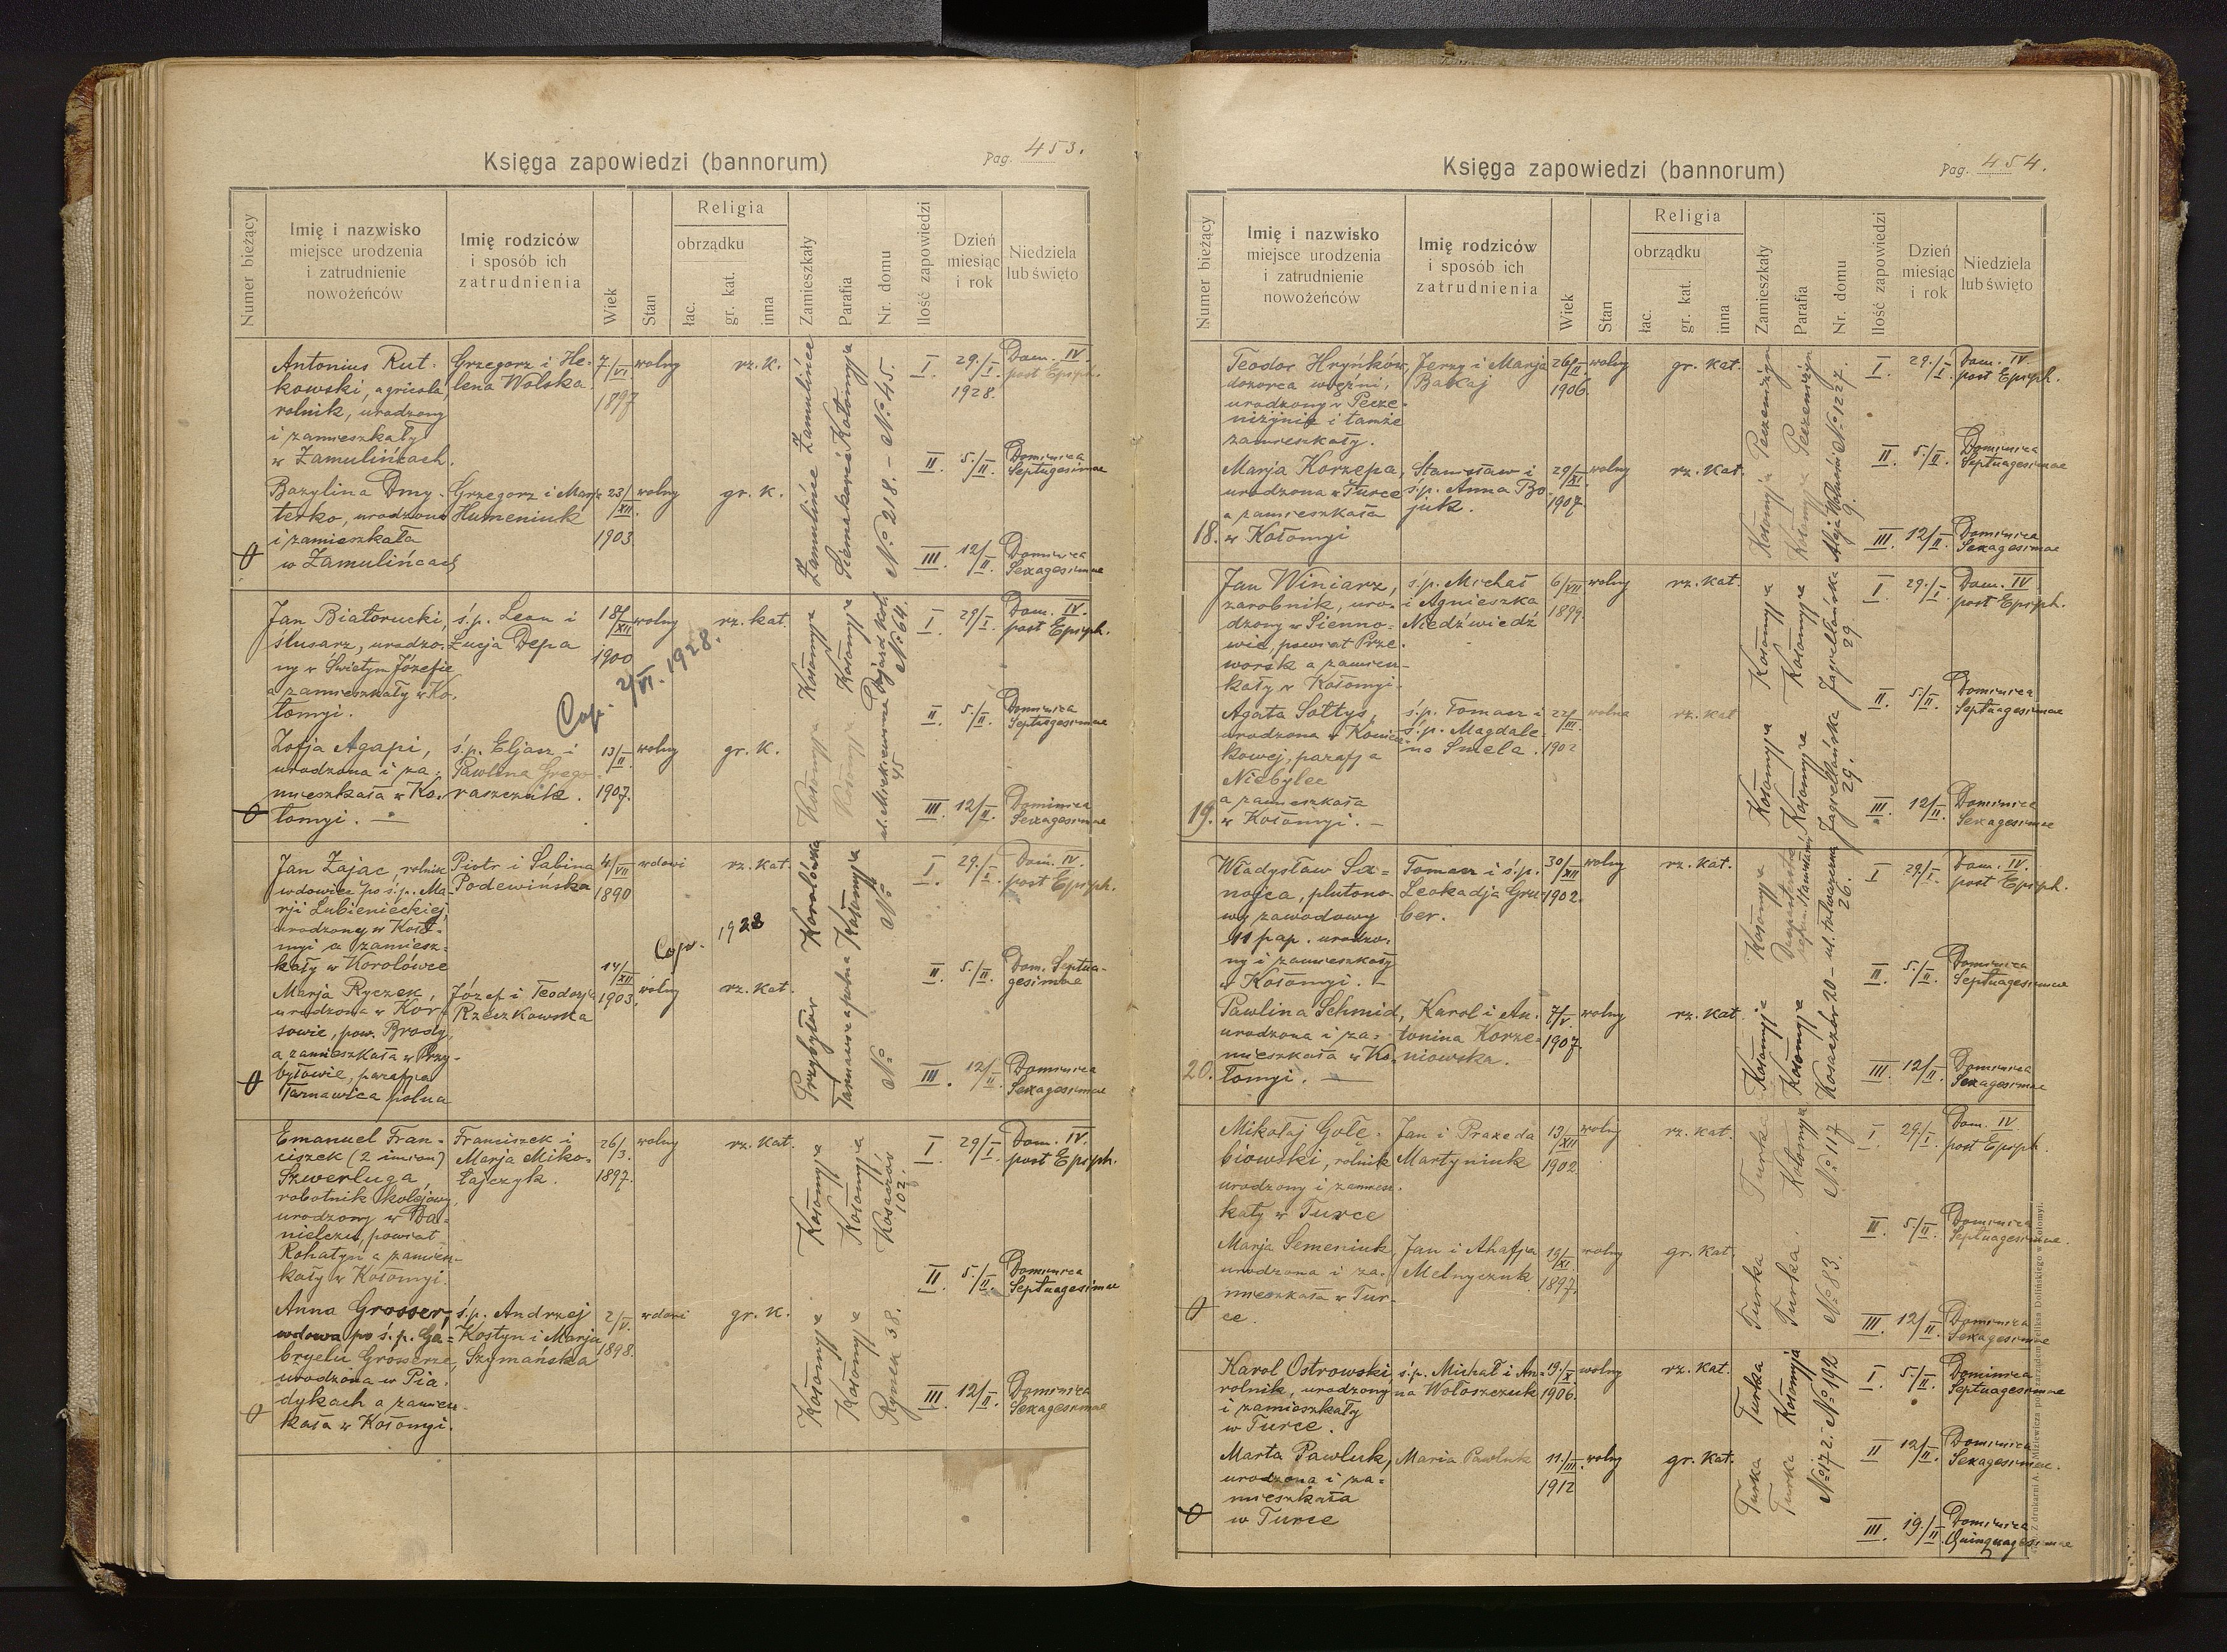 Księga zapowiedzi (bannorum)
Pag. 453.
Numer bieżący
Imię i nazwisko
miejsce urodzenia
i zatrudnienie
nowożeńców
Imię rodziców
i sposób ich
zatrudnienia
Wiek
Stan
Religia
obrządku
łac.
gr. kat.
inna
Zamieszkały
Parafia
Nr. domu
Ilość zapowiedzi
Dzień
miesiąc
i rok
Niedziela
lub święto
Antonius Rut-
kowski, agricola,
rolnik, urodzony
i zamieszkały
w Zamulińcach.
Grzegorz i He-
lena Wolska
7/VI
1897
wolny
rz. K.
Zamulińce
Kołomyja
No 45.
I. 29./I. 1928. Dom. IV. post Epiph.
Bazylina Dmy-
terko, urodzona
i zamieszkała
w Zamulińcach
Grzegorz i Marja
Humeniuk
23/XII.
1903
wolny
gr. K.
Zamulińce
Siemakowce
No 218.
II. 5./II. Dominica Septuagesimae
III. 12/II. Dominica Sexagesimae
Jan Białorucki,
ślusarz, urodzo-
ny w Świętym Józefie
a zamieszkały w Ko-
łomyi.
ś.p. Leon i
Łucja Depa
18/XII
1900
wolny
rz. kat.
Cop. 2/VI. 1928.
Kołomyja
Kołomyja
No 64.
I. 29/I. Dom. IV. post Epiph.
Zofja Agapi,
urodzona i za-
mieszkała w Ko-
łomyi. —
ś.p. Eljasz i
Pawlina Grego-
raszczuk.
13/II.
1907.
wolny
gr. K.
Kołomyja
Kołomyja
45
II. 5/II. Dominica Septuagesimae
III. 12/II. Dominica Sexagesimae
Jan Zając, rolnik
wdowiec po ś.p. Ma-
rji Lubienieckiej,
urodzony w Koło-
myi a zamiesz-
kały w Korolówce
Piotr i Sabina
Podewińska
4/VII
1890
wdowi
rz. kat.
Cop. 1928
Korolówka
Kołomyja
No
I. 29./I. Dom. IV. post Epiph.
Marja Ryczek,
urodzona w Kor-
sowie, pow. Brody,
a zamieszkała w Przy-
byłowie, parafja
Tarnawica polna
Józef i Teodozja
Rzeszkowska
14/XII
1903.
wolny
rz. kat.
Przybyłów
Tarnawica polna
No
II. 5./II. Dom. Septua-
gesimae
III. 12/II. Dominica Sexagesimae
Emanuel Fran-
ciszek (2 imion)
Szwerluga,
robotnik kolejowy,
urodzony w Da-
nielczu, powiat
Rohatyn a zamiesz-
kały w Kołomyi.
Franciszek i
Marja Miko-
łajczyk.
26/3.
1897.
wolny
rz. kat.
Kołomyja
Kołomyja
Kosaczów
102.
I 29/I. Dom. IV. post Epiph.
Anna Grosser,
wdowa po ś.p. Ga-
bryelu Grosserze,
urodzona w Pia-
dykach a zamiesz-
kała w Kołomyi.
ś.p. Andrzej
Kostyn i Marja
Szymańska
2/V.
1898.
wdowi
gr. K.
Kołomyja
Kołomyja
Rynek 38.
II. 5./II. Dominica Septuagesimae
III. 12/II. Dominica Sexagesimae
Księga zapowiedzi (bannorum)
Pag. 454.
Numer bieżący
Imię i nazwisko
miejsce urodzenia
i zatrudnienie
nowożeńców
Imię rodziców
i sposób ich
zatrudnienia
Wiek
Stan
Religia
obrządku
łac.
gr. kat.
inna
Zamieszkały
Parafia
Nr. domu
Ilość zapowiedzi
Dzień
miesiąc
i rok
Niedziela
lub święto
Teodor Hryńków,
dozorca więźni,
urodzony w Pecze-
niżynie i tamże
zamieszkały.
Jerzy i Marja
Bakaj
26/II
1906.
wolny
gr. kat.
Peczeniżyn
Peczeniżyn
No 1227.
I. 29./I. Dom. IV. post Epiph.
18.
Marja Korzepa,
urodzona w Turce
a zamieszkała
w Kołomyi
Stanisław i
ś.p. Anna Bo-
juk.
29/XI.
1907.
wolny
rz. kat.
Kołomyja
Kołomyja
Aleja Wolności
9.
II. 5/II. Dominica Septuagesimae
III. 12/II. Dominica Sexagesimae
Jan Winiarz,
zarobnik, uro-
dzony w Sienno-
wie, powiat Prze-
worsk a zamiesz-
kały w Kołomyi.
ś.p. Michał
i Agnieszka
Niedźwiedź
6/VII
1899.
wolny
rz. kat.
Kołomyja
Kołomyja
Jagiellońska
29.
I 29./I. Dom. IV post Epiph.
19.
Agata Sołtys,
urodzona w
kowej, parafja
Niebylec
a zamieszkała
w Kołomyi. —
ś.p. Tomasz i
ś.p. Magdale-
na Smela.
22/III.
1902
wolna
rz. kat
Kołomyja
Kołomyja
Jagiellońska
29.
II. 5./II. Dominica Septuagesimae
III. 12/II. Dominica Sexagesimae
Władysław Sa-
nojca, plutono-
wy zawodowy
11 pap. urodzo-
ny i zamieszkały
w Kołomyi. —
Tomasz i ś.p.
Leokadja Gru-
ber.
30/XII
1902.
wolny
rz. kat.
Kołomyja
26.
I 29/I. Dom. IV. post Epiph.
20.
Paulina Schmid,
urodzona i za-
mieszkała w Ko-
łomyi. —
Karol i An-
tonina Korze-
niowska.
7/V.
1907.
wolny
rz. kat.
Kołomyja
Kołomyja
Kosaczów 20
II. 5./II. Dominica Septuagesimae
III. 12/II. Dominica Sexagesimae
Mikołaj Gołę-
biowski, rolnik
urodzony i zamiesz-
kały w Turce
Jan i Prazeda
Martyniuk
13/XII
1902.
wolny
rz. kat.
Turka
Kołomyja
No 117
I 29/I. Dom. IV post Epiph.
Marja Semeniuk,
urodzona i za-
mieszkała w Tur-
ce.
Jan i Ahafja
Melnyczuk
19/XI.
1897.
wolny
gr. kat.
Turka
Turka.
No 83.
II. 5./II. Dominica Septuagesimae.
III. 12/II. Dominica Sexagesimae
Karol Ostrowski,
rolnik, urodzony
i zamieszkały
w Turce.
ś.p. Michał i An-
na Wołoszczuk
19./X.
1906.
wolny
rz. kat.
Turka
Kołomyja
No 192
I. 5./II. Dominica Septuagesimae
Marta Pawluk,
urodzona i za-
mieszkała
w Turce
Maria Pawluk
11./III.
1912
wolny
gr. kat.
Turka
Turka
No 172.
II 12/II. Dominica Sexagesimae.
III. 19./II. Dominica Quinquagesimae
Z drukarni A. J. Miziewicza pod zarządem Feliksa Dolińskiego w Kołomyi.